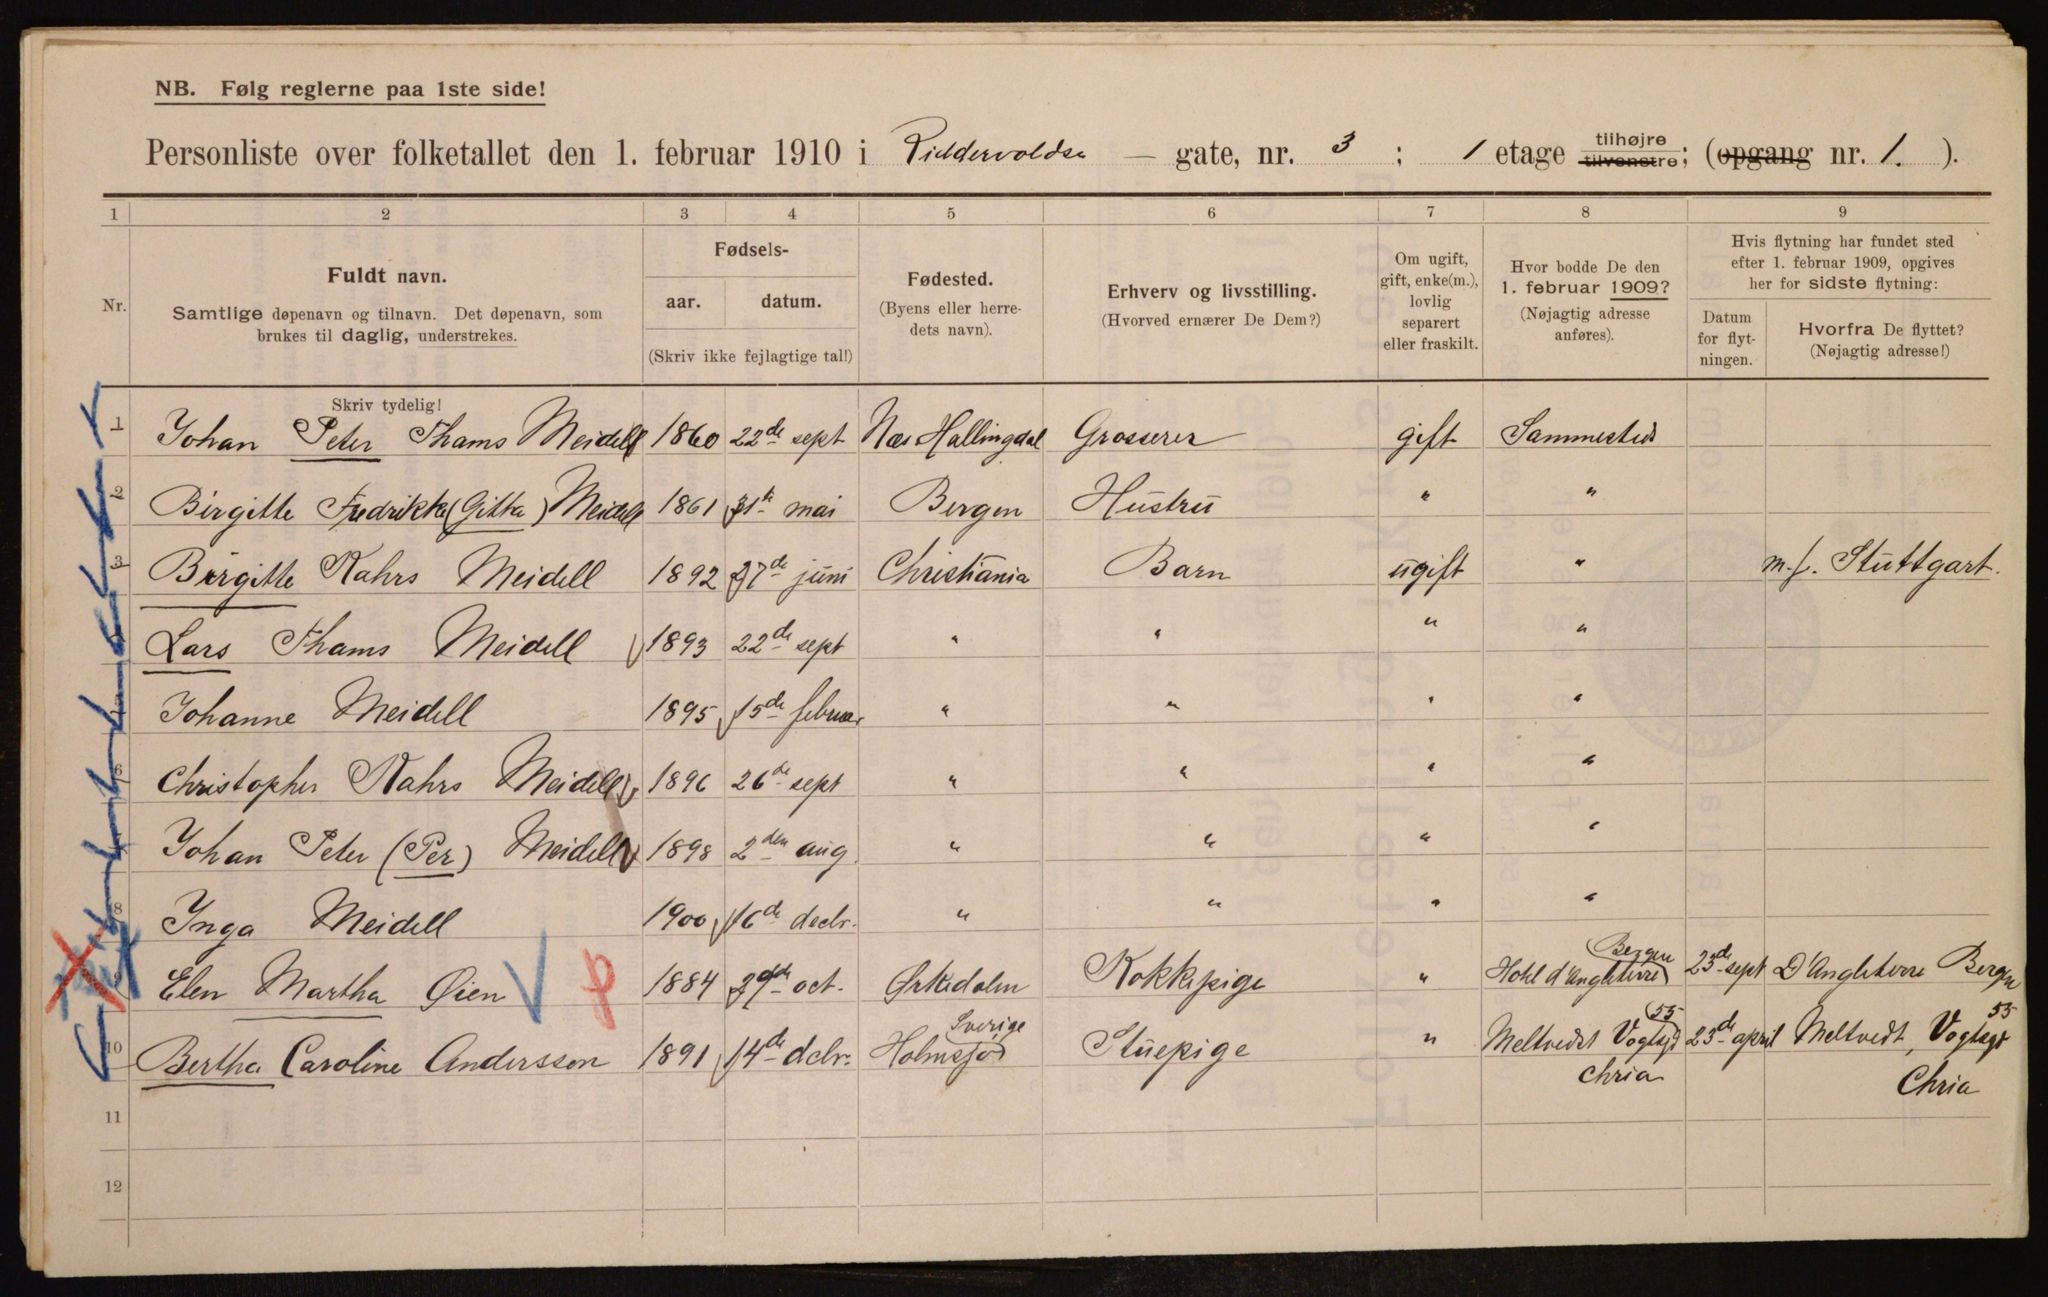 NB. Følg reglerne paa 1ste side!
Personliste over folketallet den 1. februar 1910 i Riddervoldsa — gate, nr. 3 ; 1 etage tilhøjre tilvenstre; (opgang nr. 1. ).
1 2 3 4 5 6 7 8 9
Nr.
Fuldt navn.
Samtlige døpenavn og tilnavn. Det døpenavn, som
brukes til daglig, understrekes.
Fødsels-
aar. datum.
(Skriv ikke fejlagtige tal!)
Fødested.
(Byens eller herre-
dets navn).
Erhverv og livsstilling.
(Hvorved ernærer De Dem?)
Om ugift,
gift, enke(m.),
lovlig
separert
eller fraskilt.
Hvor bodde De den
1. februar 1909?
(Nøjagtig adresse
anføres).
Hvis flytning har fundet sted
efter 1. februar 1909, opgives
her for sidste flytning:
Datum
for flyt-
ningen.
Hvorfra De flyttet?
(Nøjagtig adresse!)
Skriv tydelig!
1 Johan Peter Thams Meidell 1860 22de sept Næs Hallingdal Grosserer gift Sammesteds
2 Birgitte Fredrikke (Gitta) Meidell 1861 31te mai Bergen Hustru " "
3 Birgitte Kahrs Meidell 1892 27de juni Christiania Barn ugift " m.f. Stuttgart.
Lars Thams Meidell 1893 22de sept " " " "
Johanne Meidell 1895 15de februar " " " "
6 Christopher Kahrs Meidell 1896 26de sept " " " "
Johan Peter (Per) Meidell 1898 2den aug. " " " "
8 Inga Meidell 1900 16de decbr. " " " "
9 Elen Martha Øien 1884 29de oct. Ørkedalen Kokkepige " Hotel d'Angleterre Bergen 23de sept D'Angleterre Bergen
10 Bertha Caroline Andersson 1891 14de decbr. Holmsjød Sverige Stuepige " Meltvedt Vogtsgt 55 23de april Meltvedt, Vogtsgt 55
Chria Chria
11
12